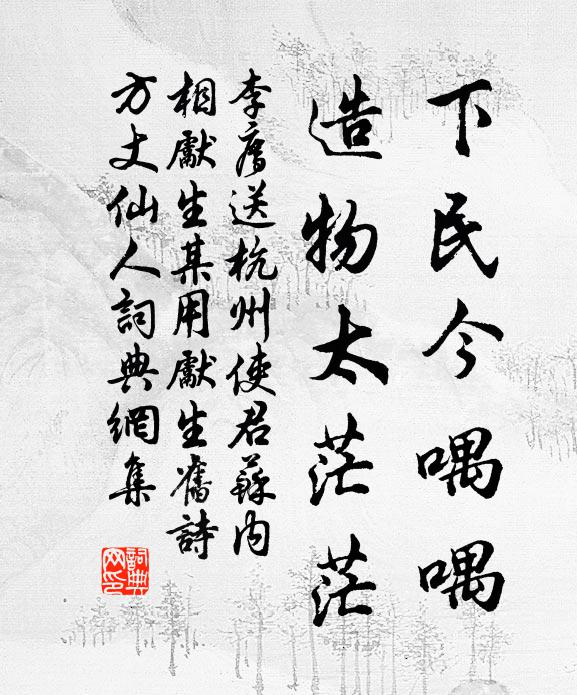 下民今喁喁
造物太茫茫
李廌送杭州使君蘇內
相獻生某用獻生舊詩
方丈仙人詞典網集
詞典
网印